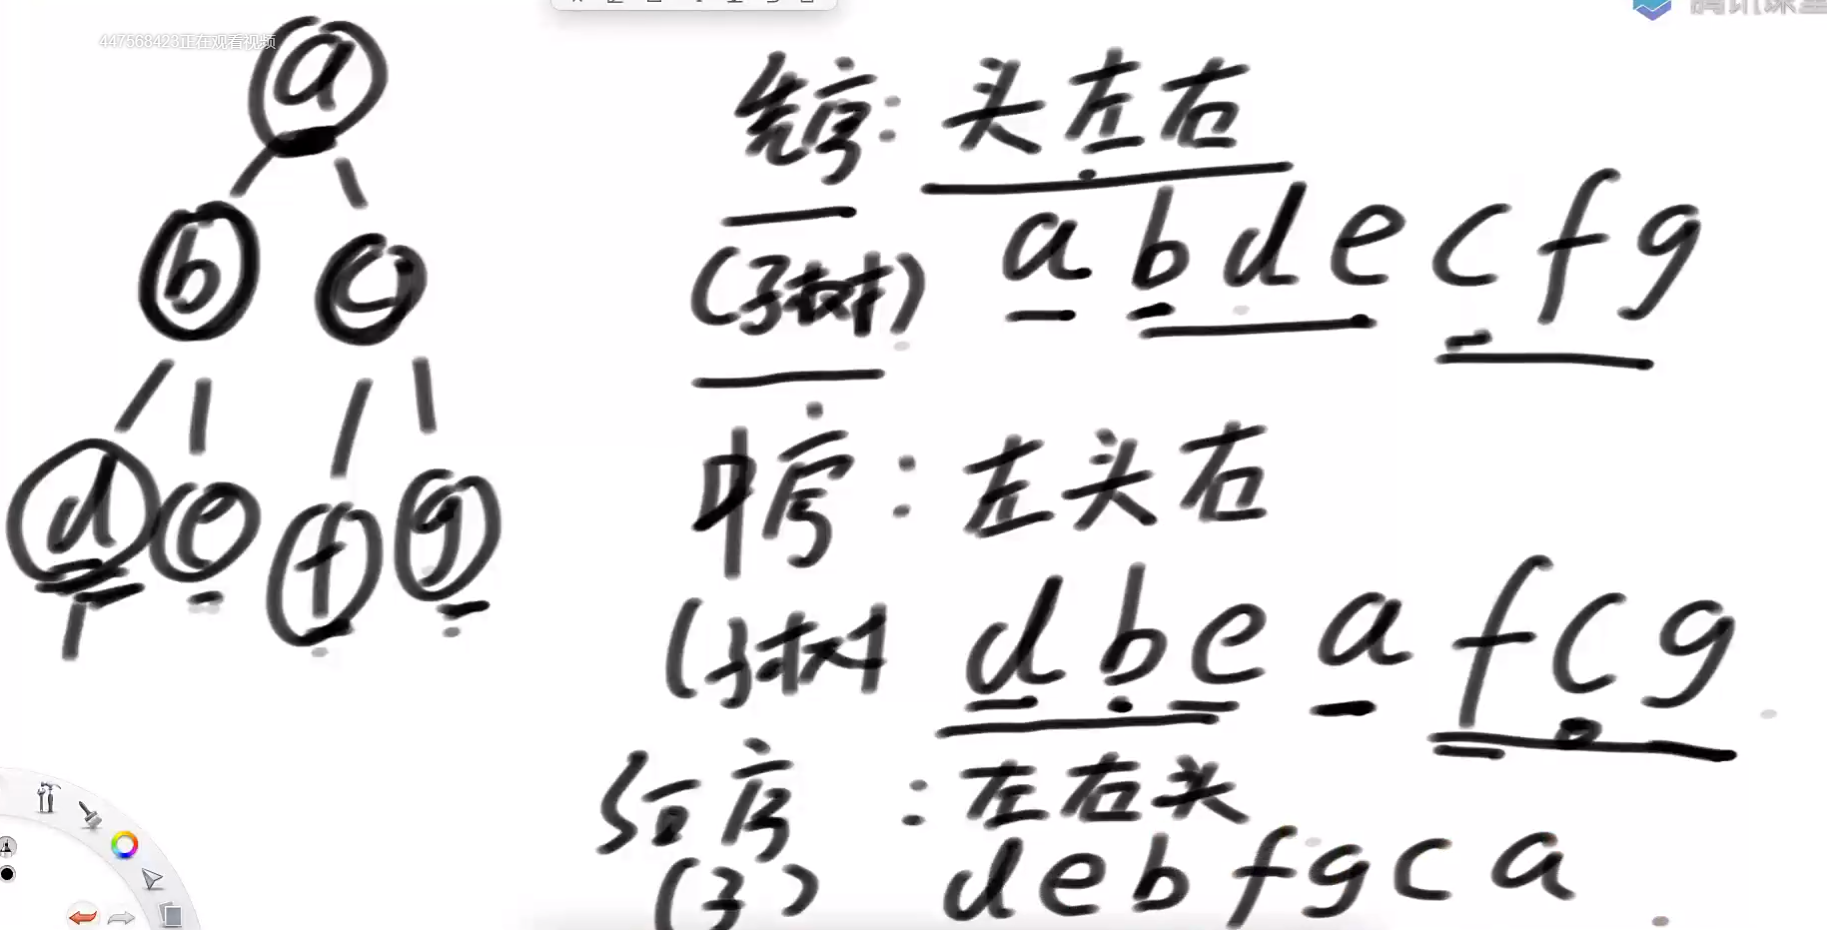 447568423正在观看视频
腾讯课堂
a
b c
d e f g
先序: 头左右
(子树) a b d e c f g
中序: 左头右
(子树 d b e a f c g
后序: 左右头
(子) d e b f g c a